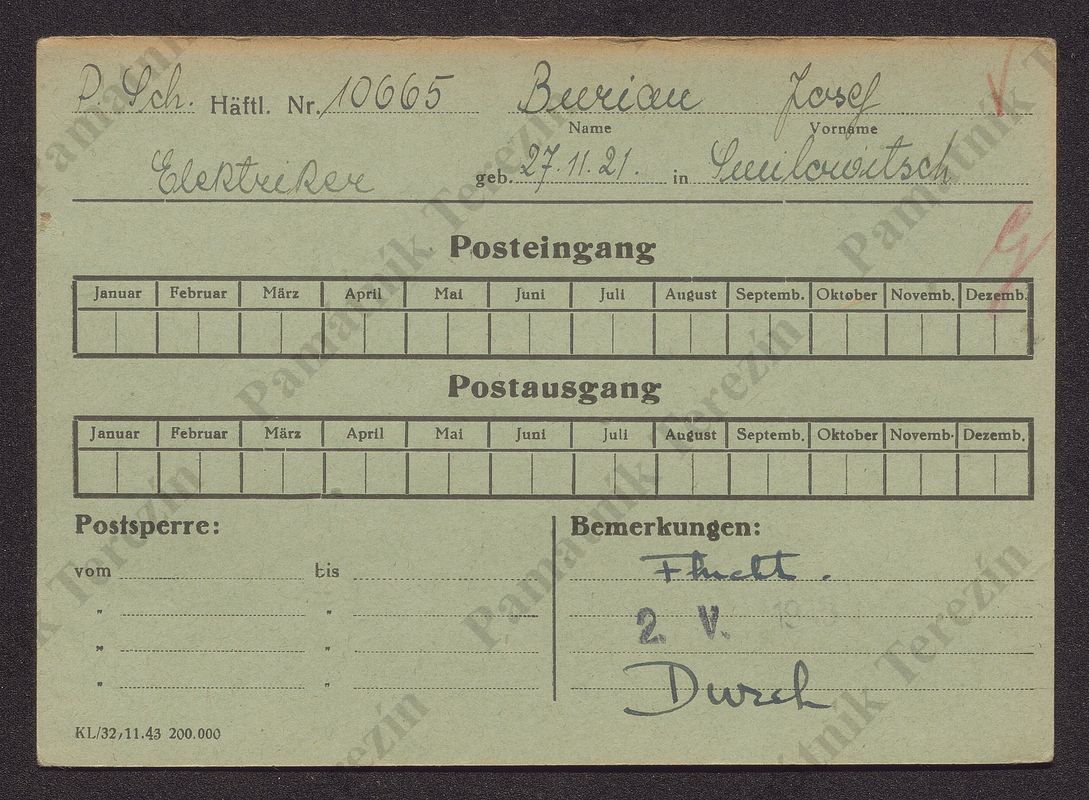 P. Sch. Häftl. Nr. 10665 Burian Josef
Name Vorname
Elektriker geb. 27.11.21. in Smilowitsch
Posteingang
Januar Februar März April Mai Juni Juli August Septemb. Oktober Novemb. Dezemb.
Postausgang
Januar Februar März April Mai Juni Juli August Septemb. Oktober Novemb. Dezemb.
Postsperre: Bemerkungen:
vom bis Flucht.
" " 2. V.
" "
" " Dursch
KL/32, 11.43 200.000
Památník Terezín